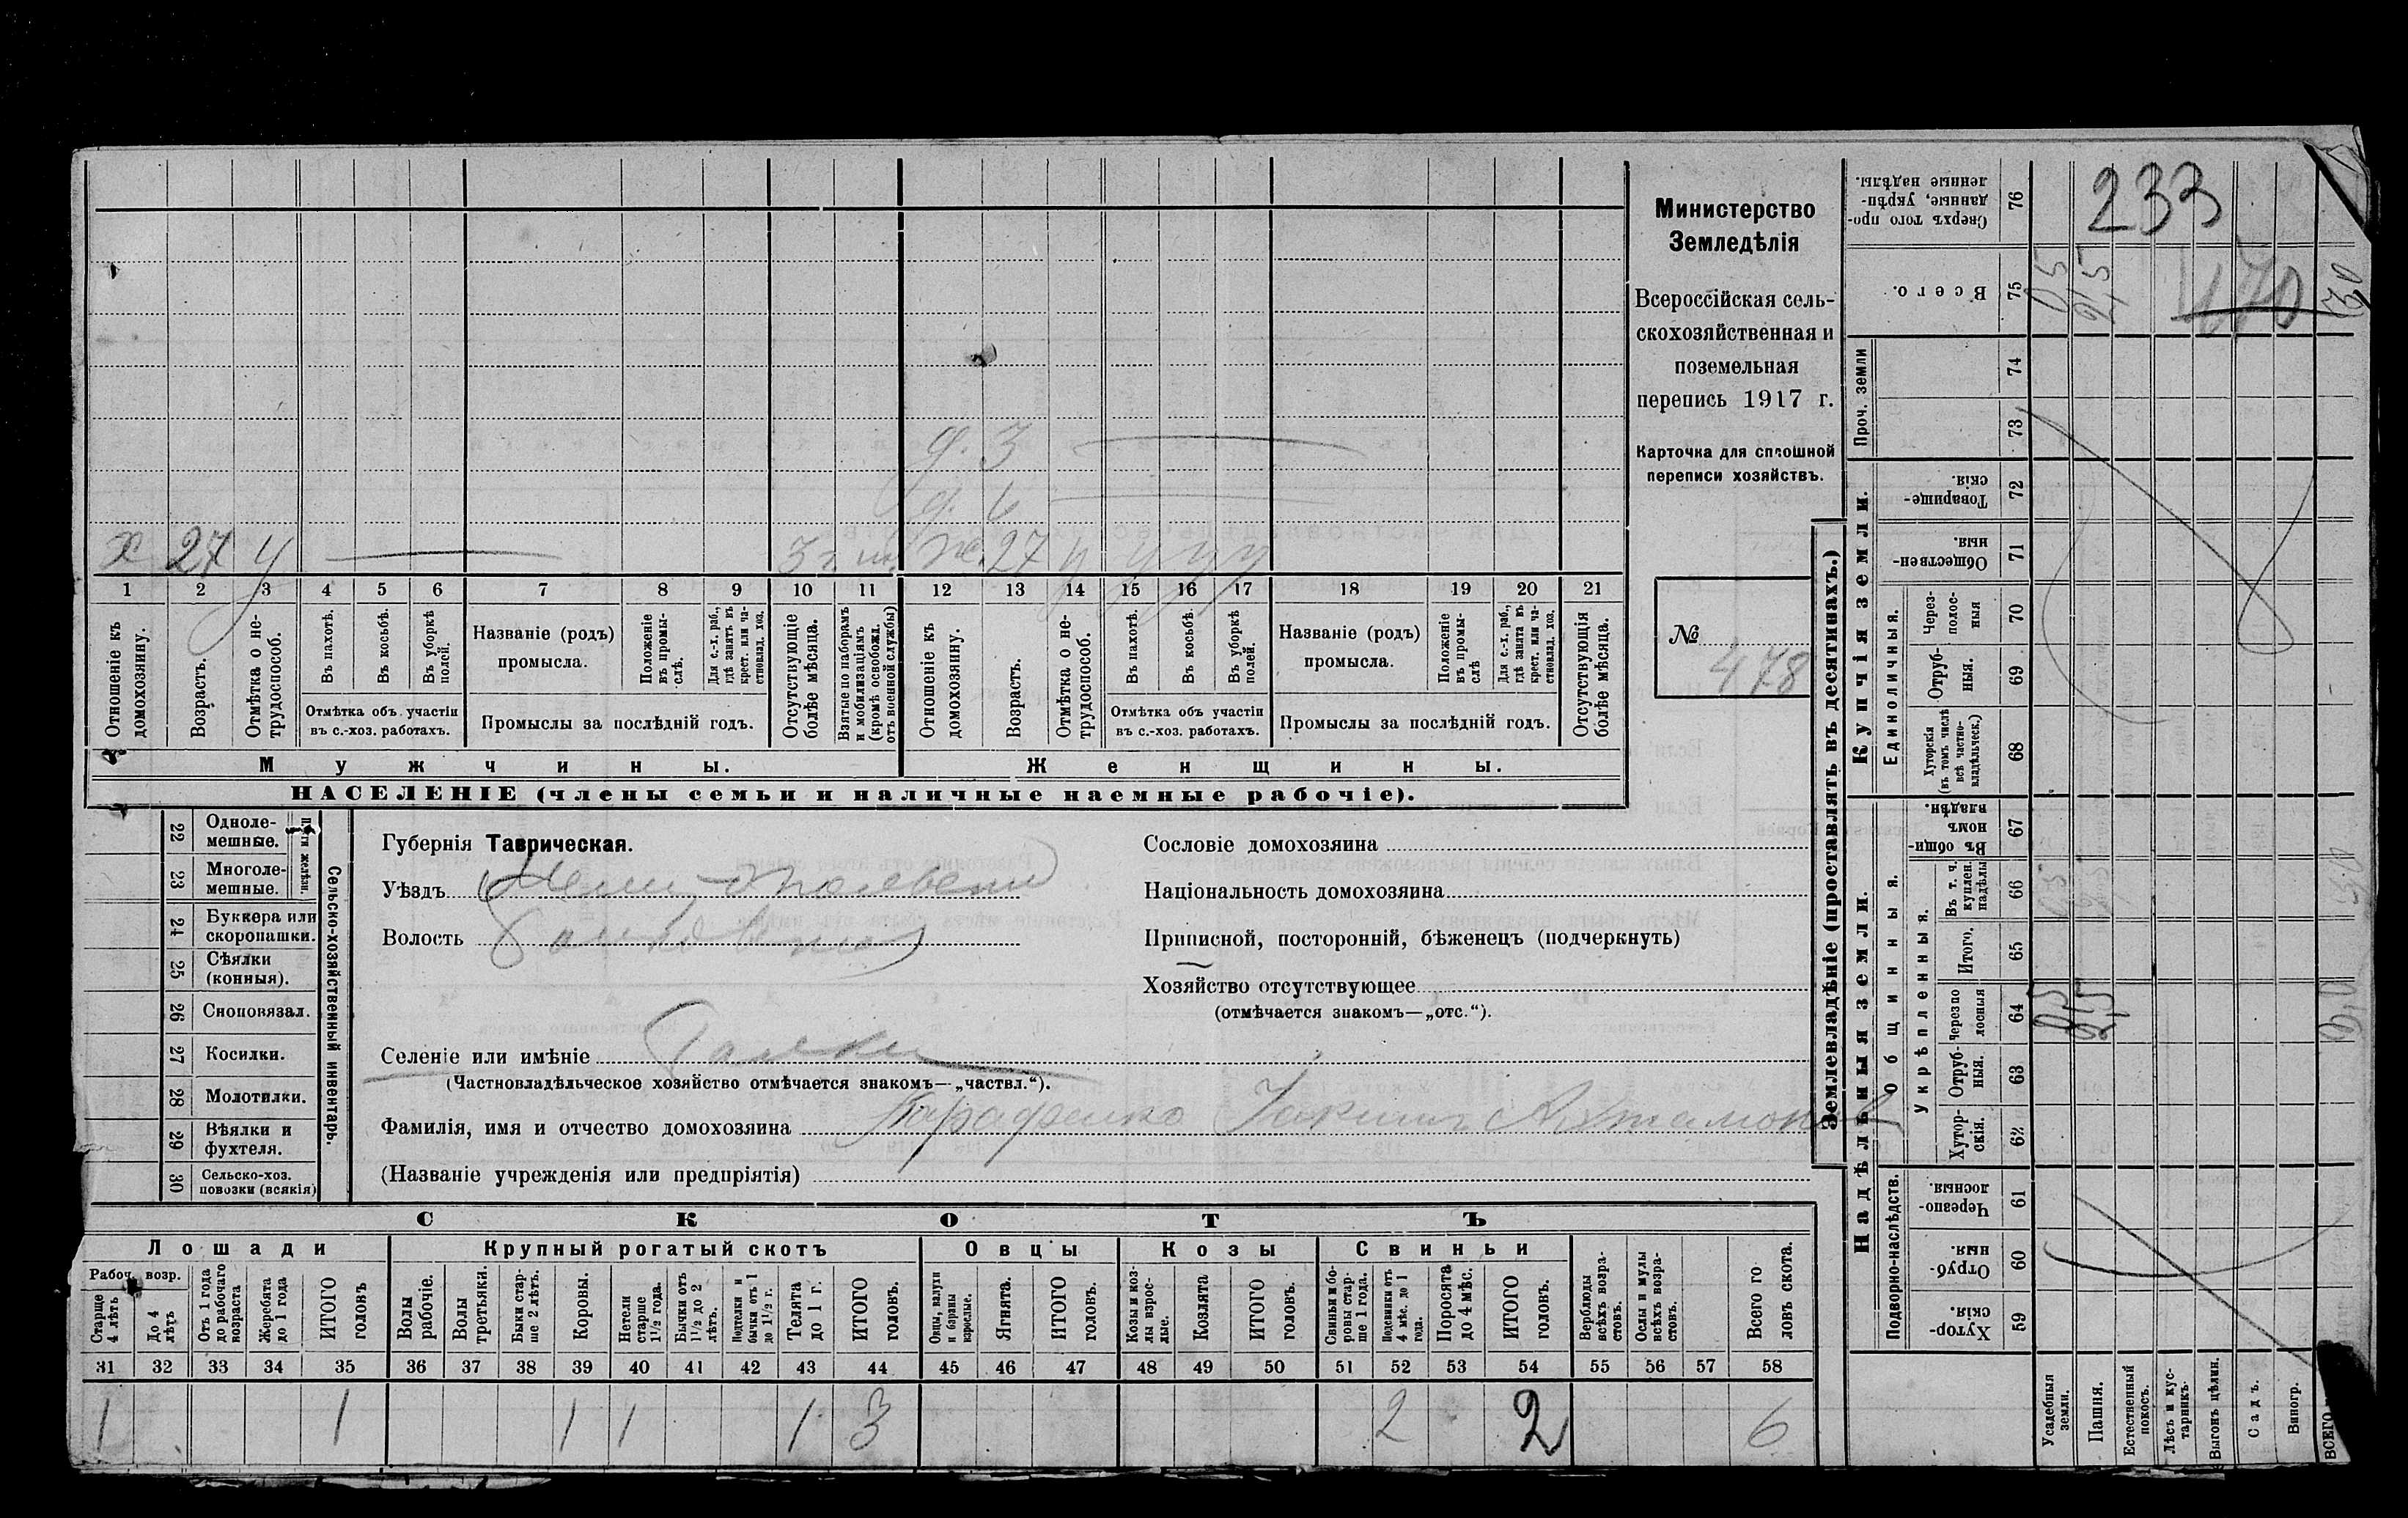 Министерство
Земледѣлія
Всероссійская сель-
скохозяйственная и
поземельная
перепись 1917 г.
Карточка для сплошной
переписи хозяйствъ.
№
478
д. 3
д. 6
х 27 у 3 г. ж. 27 у у у у
1 2 3 4 5 6 7 8 9 10 11 12 13 14 15 16 17 18 19 20 21
Отношеніе къ домохозяину.
Возрастъ.
Отмѣтка о не-трудоспособ.
Въ пахотѣ.
Въ косьбѣ.
Въ уборкѣ полей.
Отмѣтка объ участіи
въ с.-хоз. работахъ.
Названіе (родъ)
промысла.
Положеніе въ промы-слѣ.
Для с.-х. раб., гдѣ занятъ въ крест. или ча-стновлад. хоз.
Промыслы за послѣдній годъ.
Отсутствующіе болѣе мѣсяца.
Взятые по наборамъ и мобилизаціямъ (кромѣ освобожд. отъ военной службы)
Отношеніе къ домохозяину.
Возрастъ.
Отмѣтка о не-трудоспособ.
Въ пахотѣ.
Въ косьбѣ.
Въ уборкѣ полей.
Отмѣтка объ участіи
въ с.-хоз. работахъ.
Названіе (родъ)
промысла.
Положеніе въ промы-слѣ
Для с.-х. раб., гдѣ занята въ крест. или ча-стновлад. хоз.
Промыслы за послѣдній годъ.
Отсутствующія болѣе мѣсяца.
Мужчины.
Женщины.
НАСЕЛЕНІЕ (члены семьи и наличные наемные рабочіе).
22 Одноле-мешные.
23 Многоле-мешные.
24 Буккера или скоропашки.
25 Сѣялки (конныя).
26 Сноповязал.
27 Косилки.
28 Молотилки.
29 Вѣялки и фухтеля.
30 Сельско-хоз. повозки (всякія)
Сельско-хозяйственный инвентарь.
Губернія Таврическая.
Уѣздъ
Волость
Селеніе или имѣніе
(Частновладѣльческое хозяйство отмѣчается знакомъ—„частвл.“).
Фамилія, имя и отчество домохозяина
(Названіе учрежденія или предпріятія)
Сословіе домохозяина
Національность домохозяина
Приписной, посторонній, бѣженецъ (подчеркнуть)
Хозяйство отсутствующее
(отмѣчается знакомъ—„отс.“).
СКОТЪ
Лошади
Крупный рогатый скотъ
Овцы
Козы
Свиньи
Рабоч. возр.
Старше 4 лѣтъ
До 4 лѣтъ
Отъ 1 года до рабочаго возраста
Жеребята до 1 года
ИТОГО головъ
Волы рабочіе.
Волы третьяки.
Быки стар-ше 2 лѣтъ.
Коровы.
Нетели старше 1½ года.
Бычки отъ 1½ до 2 лѣтъ.
Подтелки и бычки отъ 1 до 1½ г.
Телята до 1 г.
ИТОГО головъ.
Овцы, валухи и бараны взрослые.
Ягнята.
ИТОГО головъ.
Козы и коз-лы взрос-лые.
Козлята
ИТОГО головъ.
Свиньи и бо-ровы стар-ше 1 года.
Подсвинки отъ 4 мѣс. до 1 года.
Поросята до 4 мѣс.
ИТОГО головъ.
Верблюды всѣхъ возра-стовъ.
Ослы и мулы всѣхъ возра-стовъ.
Всего го-ловъ скота.
31 32 33 34 35 36 37 38 39 40 41 42 43 44 45 46 47 48 49 50 51 52 53 54 55 56 57 58
1 1 1 1 1 3 2 2 6
Землевладѣніе (проставлять въ десятинахъ.)
Надѣльныя земли.
Купчія земли.
Проч. земли
Подворно-наслѣдств.
Общинныя.
Укрѣпленныя.
Единоличныя.
Сверхъ того про-данные, укрѣп-ленные надѣлы. 76
233
Всего. 75
470
74
73
Товарище-скія. 72
Обществен-ныя. 71
Через-полос-ныя 70
Отруб-ныя. 69
Хуторскія (въ томъ числѣ всѣ частно-владѣльческ.) 68
Въ общи-номъ владѣн. 67
Въ т. ч. куплен. надѣлы 66
Итого. 65
Черезпо-лосныя 64
Отруб-ныя. 63
Хутор-скія. 62
Черезпо-лосныя. 61
Отруб-ныя. 60
Хутор-скія. 59
Усадебныя земли.
Пашня.
Естественный покосъ.
Лѣсъ и кус-тарникъ.
Выгонъ цѣлин.
Садъ.
Виногр.
ВСЕГО